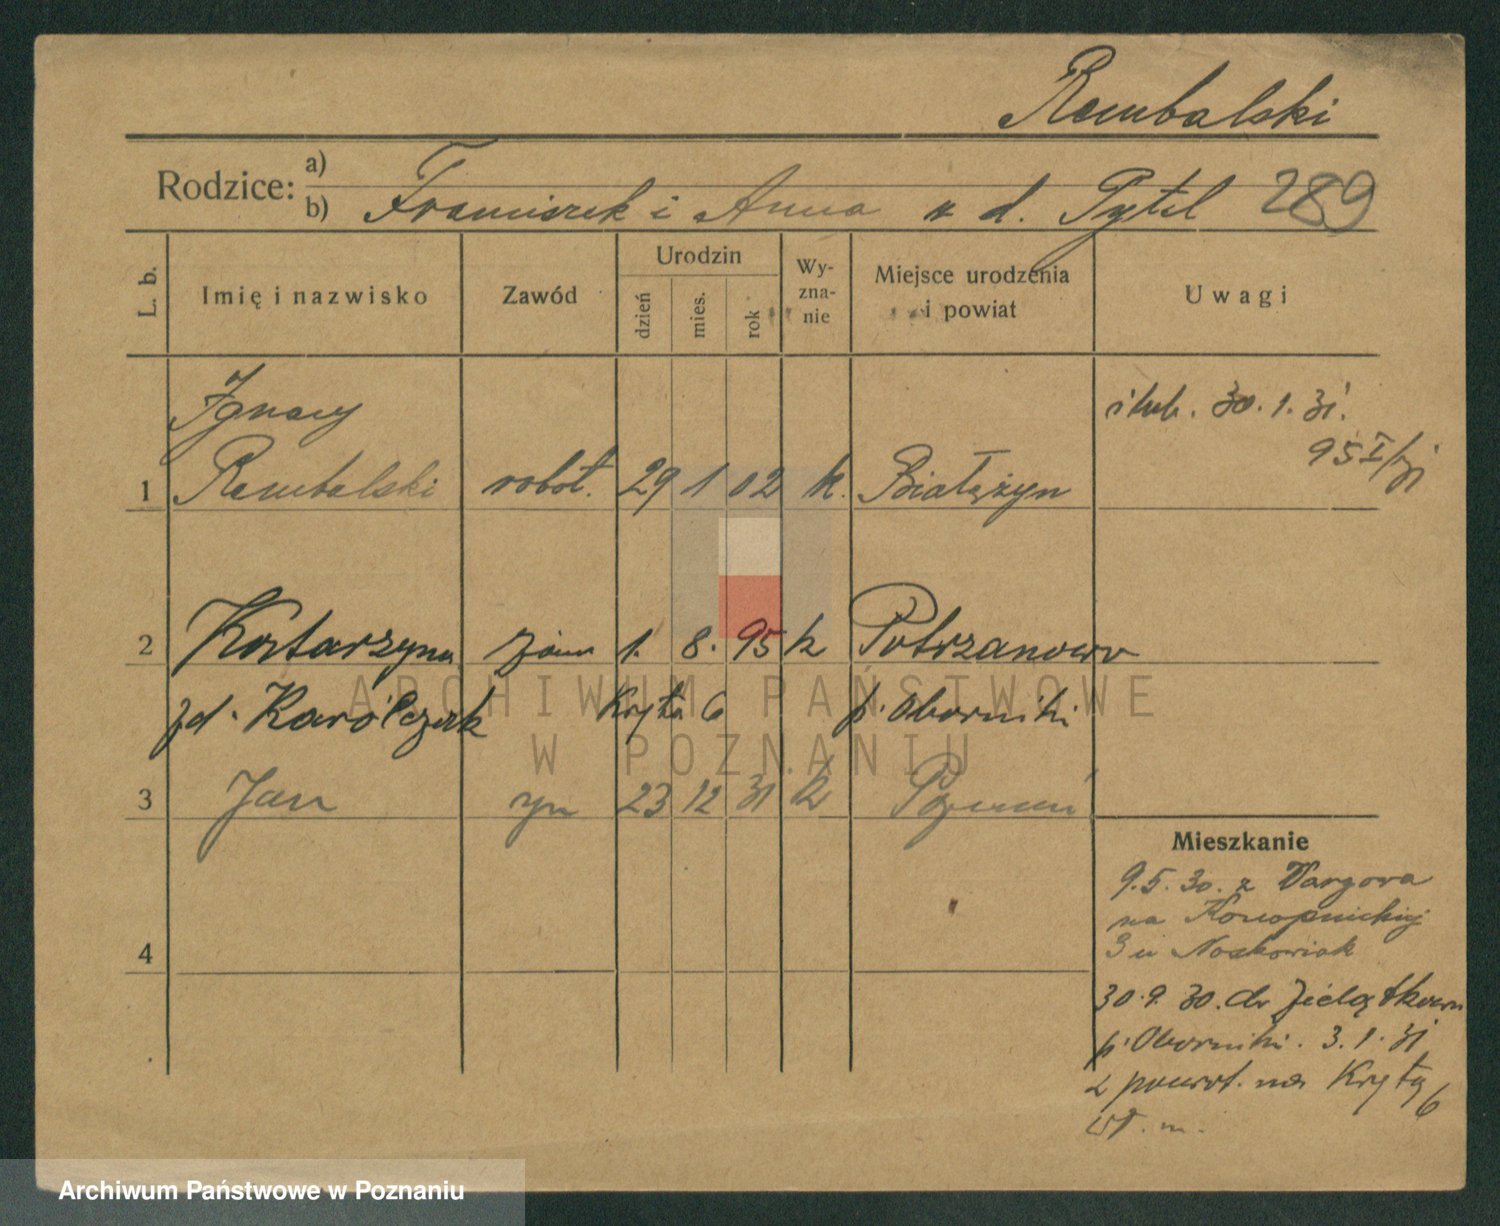 Rembalski
Rodzice: a)
b) Franciszek i Anna z d. Pytel 289
L. b.
Imię i nazwisko
Zawód
Urodzin
dzień
mies.
rok
Wy-
zna-
nie
Miejsce urodzenia
i powiat
Uwagi
Ignacy
ślub. 30.1.31.
95 I/31
1 Rembalski robot. 29 1 02 k. Białężyn
2 Katarzyna żona 1. 8. 95 k Potrzanowo
zd. Karólczak Kręta 6 p. Oborniki
3 Jan syn 23 12 31 k Poznań
Mieszkanie
9.5.30. z Wargowa
na Konopnickiej
3 u Noskowiak
4
30.9.30. do Zielątkowa
p. Oborniki. 3.1.31
z powrot. na Kręta 6
wł. m.
ARCHIWUM PAŃSTWOWE
W POZNANIU
Archiwum Państwowe w Poznaniu